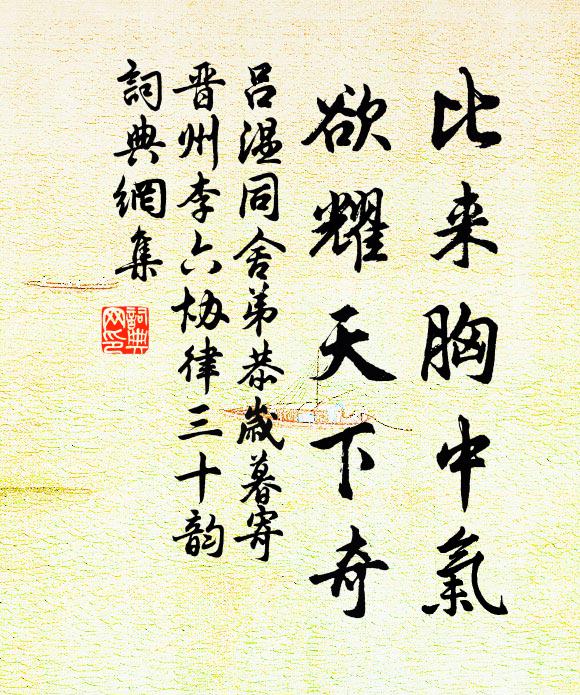 比来胸中氣
欲耀天下奇
吕温同舍弟恭歲暮寄
晋州李六协律三十韵
詞典網集
詞典网印